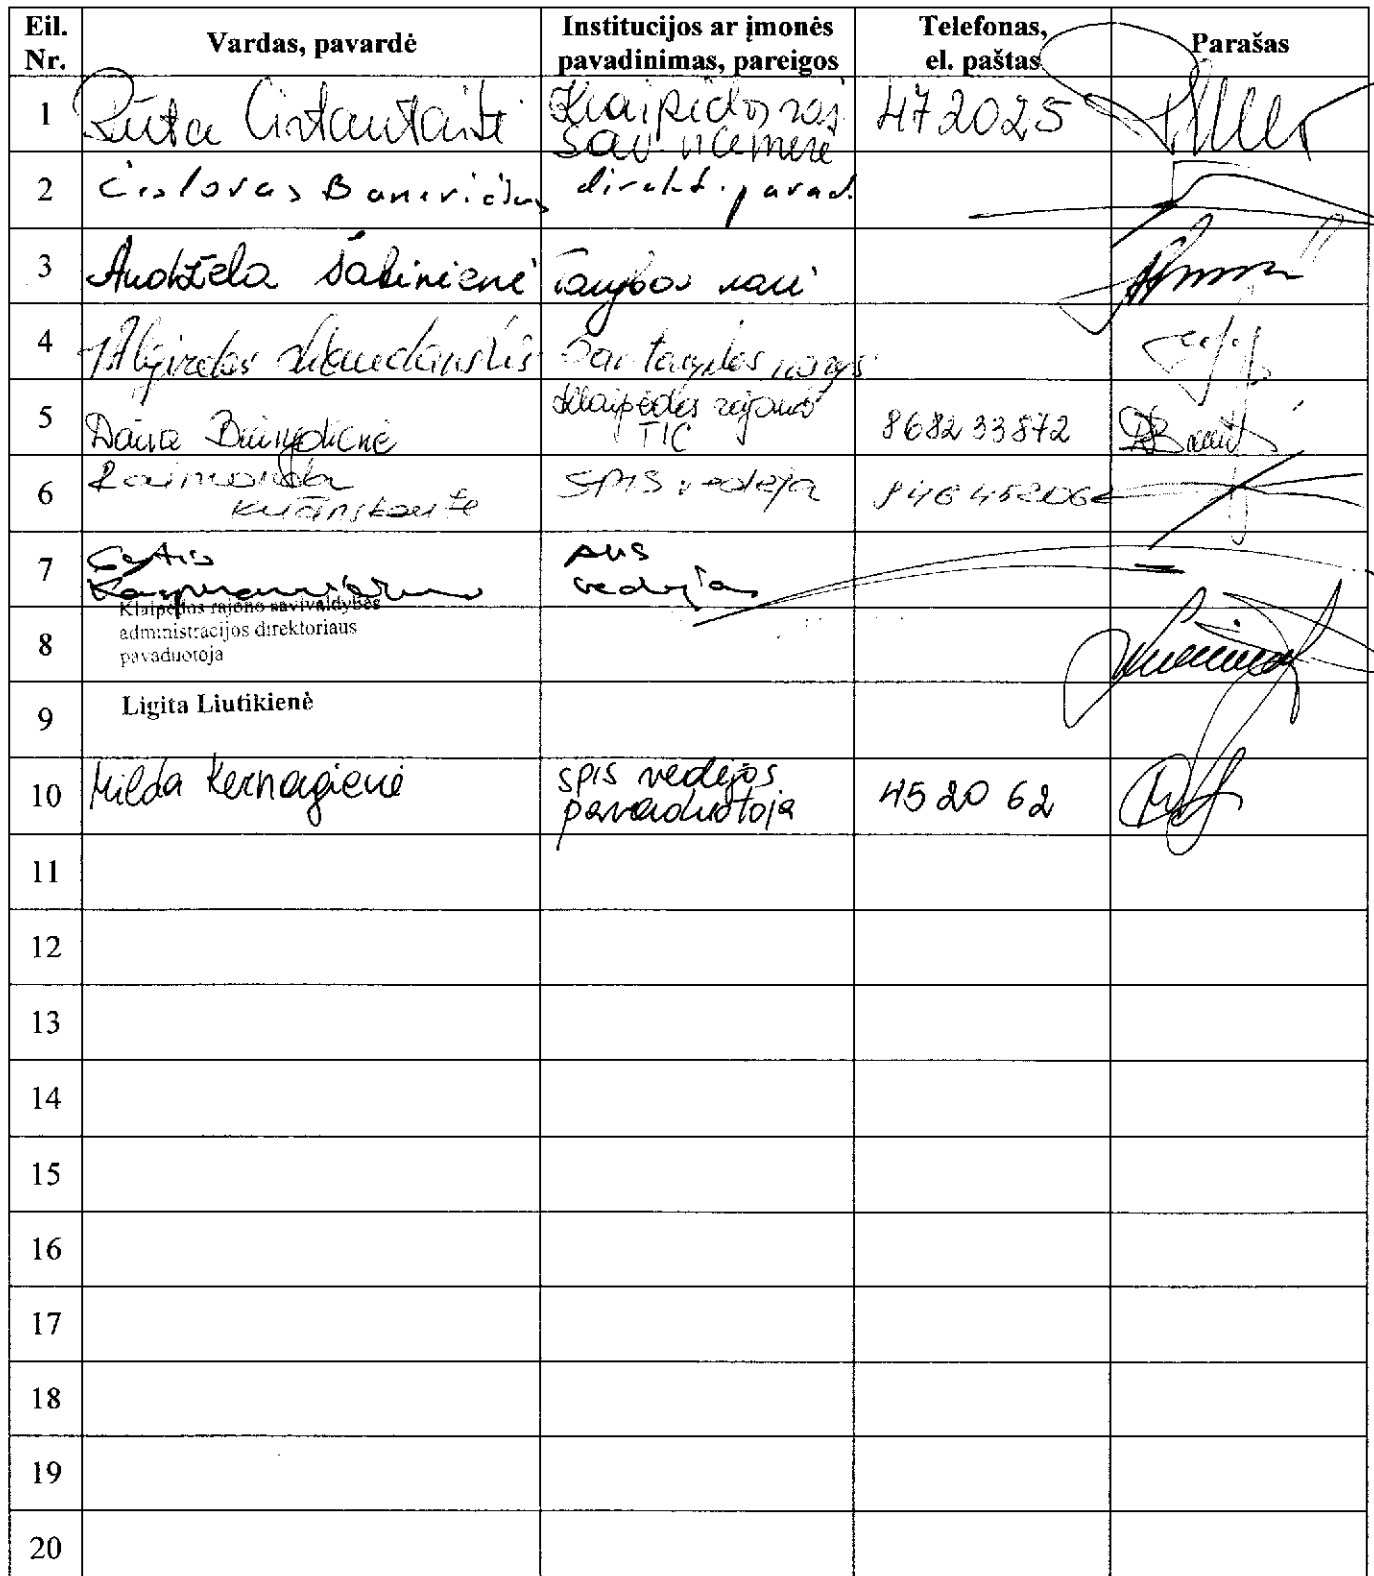 Eil. Nr. Vardas, pavardė Institucijos ar įmonės pavadinimas, pareigos Telefonas, el. paštas Parašas
1 Rūta Cirtautaitė Klaipėdos raj. sav. vicemerė 472025
2 Česlovas Banevičius direkt. pavad.
3 Andžela Šakinienė Tarybos narė
4 Algirdas tarybos narys
5 Daiva Buivydienė Klaipėdos rajono TIC 868233872
6 Raimonda SPIS vedėja
7 vedėjas
Klaipėdos rajono savivaldybės
8 administracijos direktoriaus
pavaduotoja
9 Ligita Liutikienė
10 Milda Kernagienė SPIS vedėjos pavaduotoja 452062
11
12
13
14
15
16
17
18
19
20